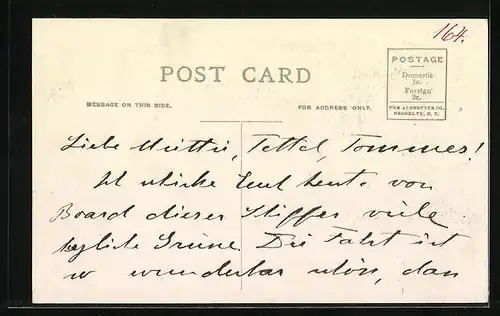 164.
POST CARD
POSTAGE
Domestic
1c.
Foreign
2c.
THE ALBERTYPE CO.
BROOKLYN, N. Y.
MESSAGE ON THIS SIDE.
FOR ADDRESS ONLY.
Liebe Mutti, Tettel, Tommes!
Ich schicke Euch heute von
Board dieses Schiffes viele
herzliche Grüsse. Die Fahrt ist
so wunderbar schön, dass